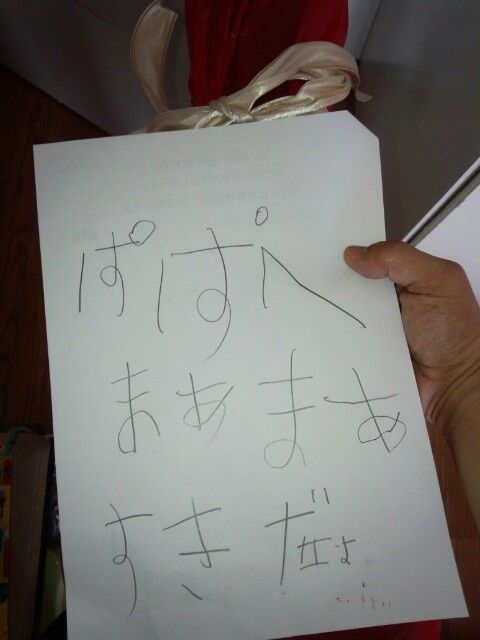 ぱぱへ
まあまあ
すきだよ